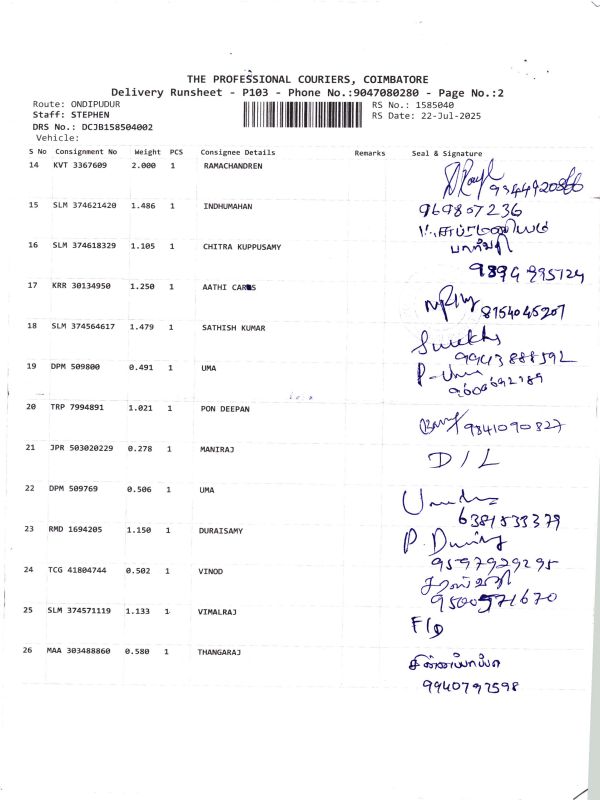 THE PROFESSIONAL COURIERS, COIMBATORE
Delivery Runsheet - P103 - Phone No.:9047080280 - Page No.:2
Route: ONDIPUDUR RS No.: 1585040
Staff: STEPHEN RS Date: 22-Jul-2025
DRS No.: DCJB158504002
Vehicle:
S No Consignment No Weight PCS Consignee Details Remarks Seal & Signature
14 KVT 3367609 2.000 1 RAMACHANDREN
15 SLM 374621420 1.486 1 INDHUMAHAN 969807236
16 SLM 374618329 1.105 1 CHITRA KUPPUSAMY
17 KRR 30134950 1.250 1 AATHI CARGS
8154045207
18 SLM 374564617 1.479 1 SATHISH KUMAR
9943888592
19 DPM 509800 0.491 1 UMA P-Uma
9600692189
20 TRP 7994891 1.021 1 PON DEEPAN
9841090827
21 JPR 503020229 0.278 1 MANIRAJ D/L
22 DPM 509769 0.506 1 UMA
6381533379
23 RMD 1694205 1.150 1 DURAISAMY
9597929295
24 TCG 41804744 0.502 1 VINOD
9500571670
25 SLM 374571119 1.133 1 VIMALRAJ F/D
26 MAA 303488860 0.580 1 THANGARAJ
9940797598